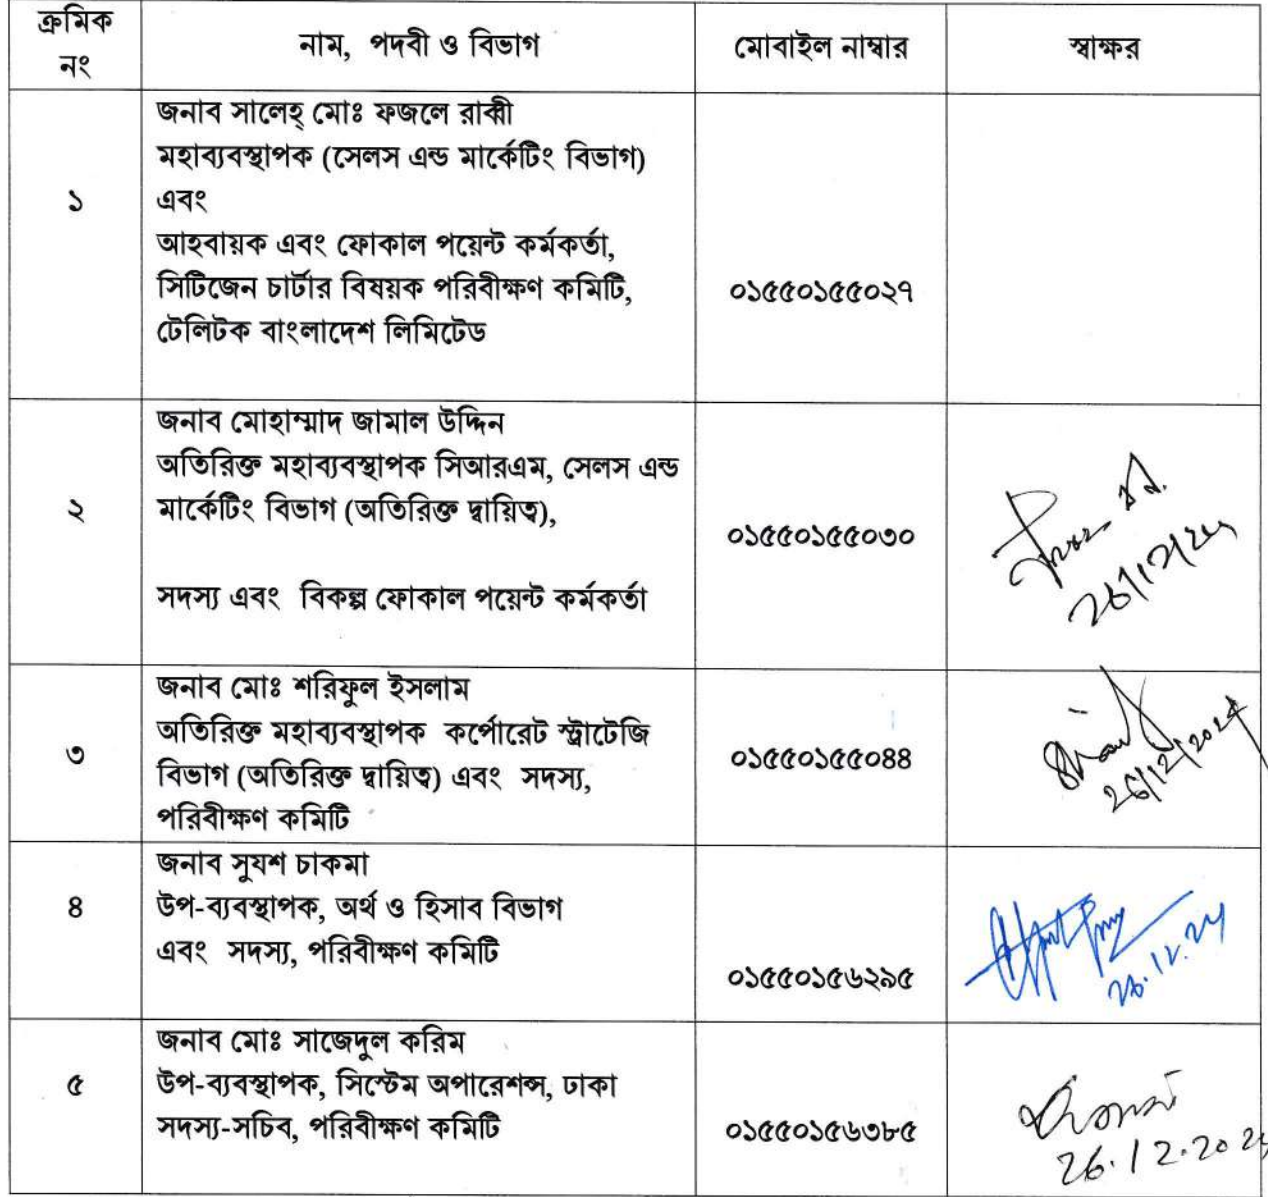 ক্রমিক
নং
নাম, পদবী ও বিভাগ
মোবাইল নাম্বার
স্বাক্ষর
১
জনাব সালেহ্ মোঃ ফজলে রাব্বী
মহাব্যবস্থাপক (সেলস এন্ড মার্কেটিং বিভাগ)
এবং
আহবায়ক এবং ফোকাল পয়েন্ট কর্মকর্তা,
সিটিজেন চার্টার বিষয়ক পরিবীক্ষণ কমিটি,
টেলিটক বাংলাদেশ লিমিটেড
০১৫৫০১৫৫০২৭
২
জনাব মোহাম্মাদ জামাল উদ্দিন
অতিরিক্ত মহাব্যবস্থাপক সিআরএম, সেলস এন্ড
মার্কেটিং বিভাগ (অতিরিক্ত দ্বায়িত্ব),
সদস্য এবং বিকল্প ফোকাল পয়েন্ট কর্মকর্তা
০১৫৫০১৫৫০৩০
২৬/১২/২৪
৩
জনাব মোঃ শরিফুল ইসলাম
অতিরিক্ত মহাব্যবস্থাপক কর্পোরেট স্ট্রাটেজি
বিভাগ (অতিরিক্ত দ্বায়িত্ব) এবং সদস্য,
পরিবীক্ষণ কমিটি
০১৫৫০১৫৫০৪৪
26/12/2024
৪
জনাব সুযশ চাকমা
উপ-ব্যবস্থাপক, অর্থ ও হিসাব বিভাগ
এবং সদস্য, পরিবীক্ষণ কমিটি
০১৫৫০১৫৬২৯৫
26.12.24
৫
জনাব মোঃ সাজেদুল করিম
উপ-ব্যবস্থাপক, সিস্টেম অপারেশন্স, ঢাকা
সদস্য-সচিব, পরিবীক্ষণ কমিটি
০১৫৫০১৫৬৩৮৫
26.12.2024